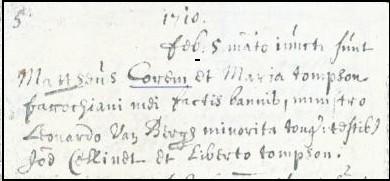 5 1710.
feb. 5 mato iuncti sunt
Mattheus Coreni et Maria tompson
parochiani mei factis bannis, ministro
Leonardo Van Bergh minorita tong: testib)
Jod Collinet et Liberto tompson.